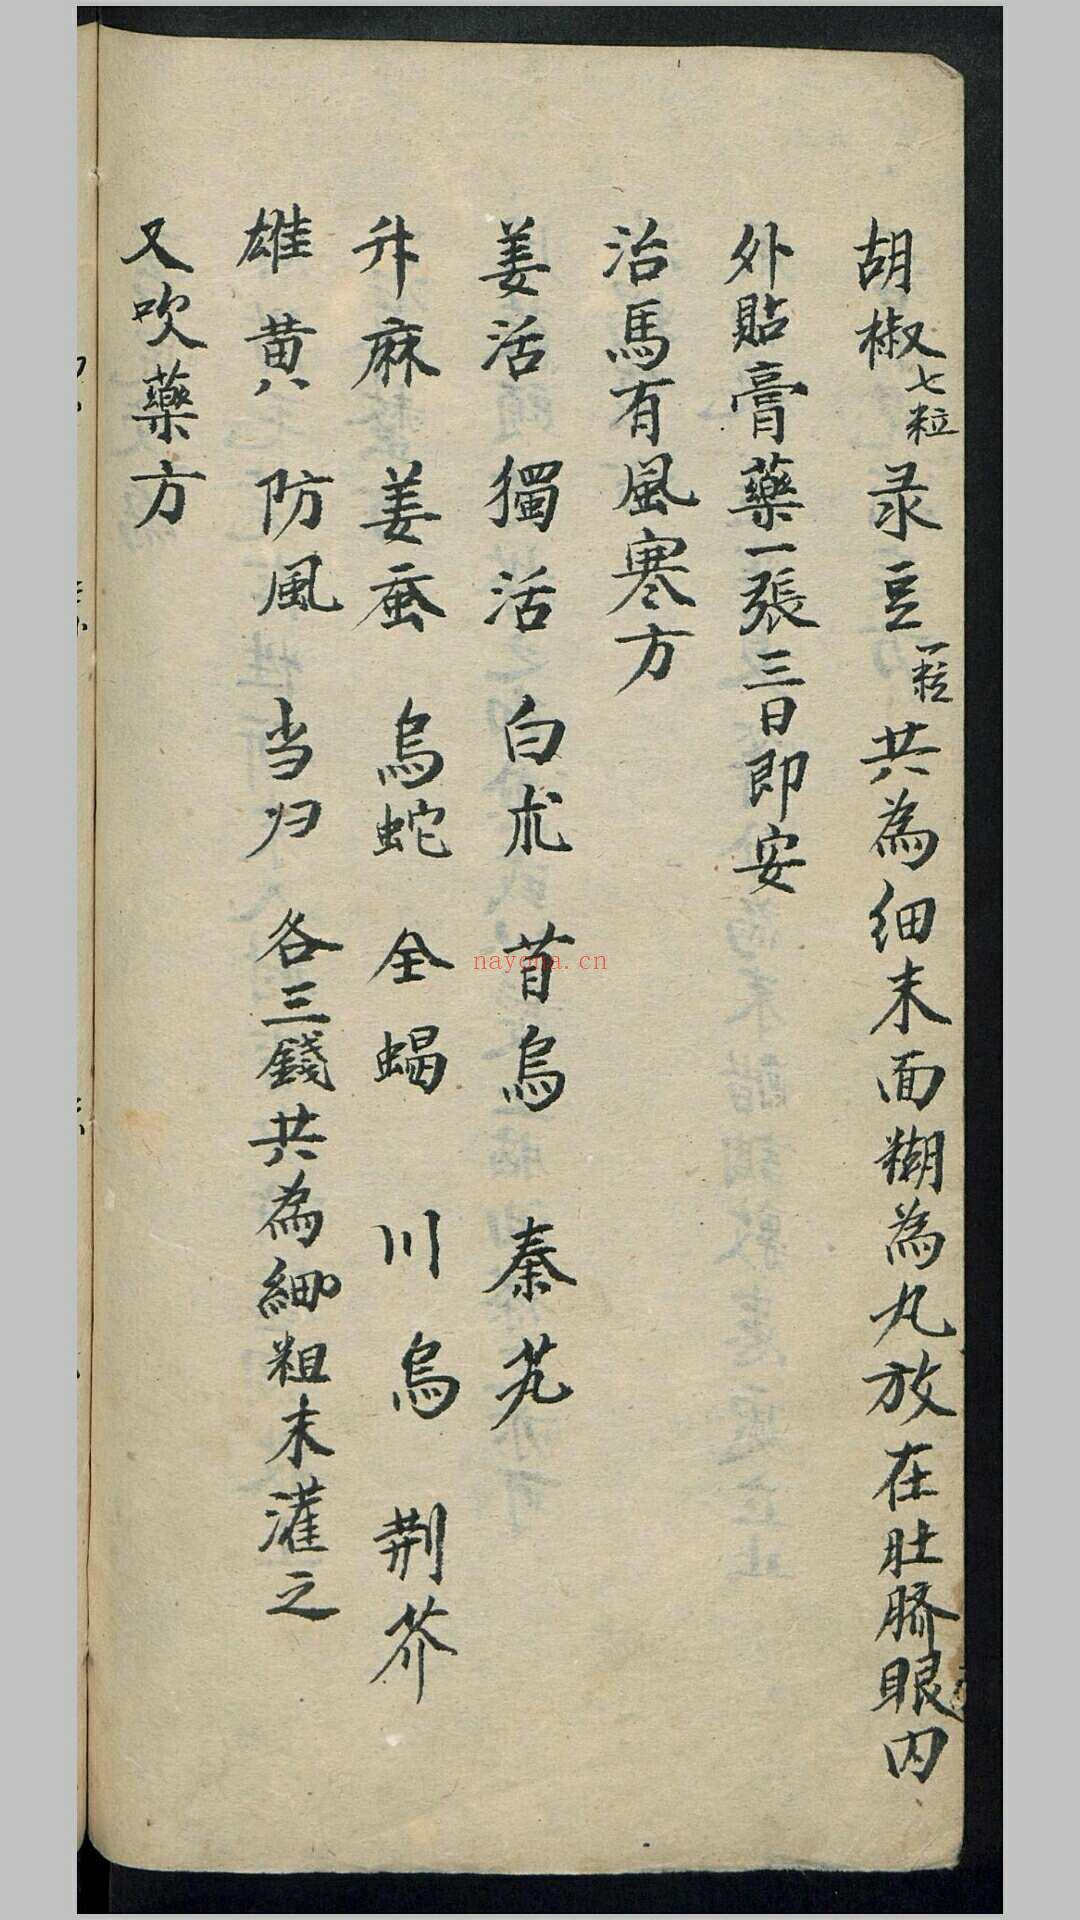 胡椒七粒 录豆一粒 共為细末面糊為丸放在肚臍眼内
外貼膏藥一張三日即安
治馬有風寒方
姜活 獨活 白朮 首烏 秦艽
升麻 姜蚕 烏蛇 全蝎 川烏 荆芥
雄黄 防風 当归 各三錢共為細粗末灌之
又吹藥方
nayona.cn